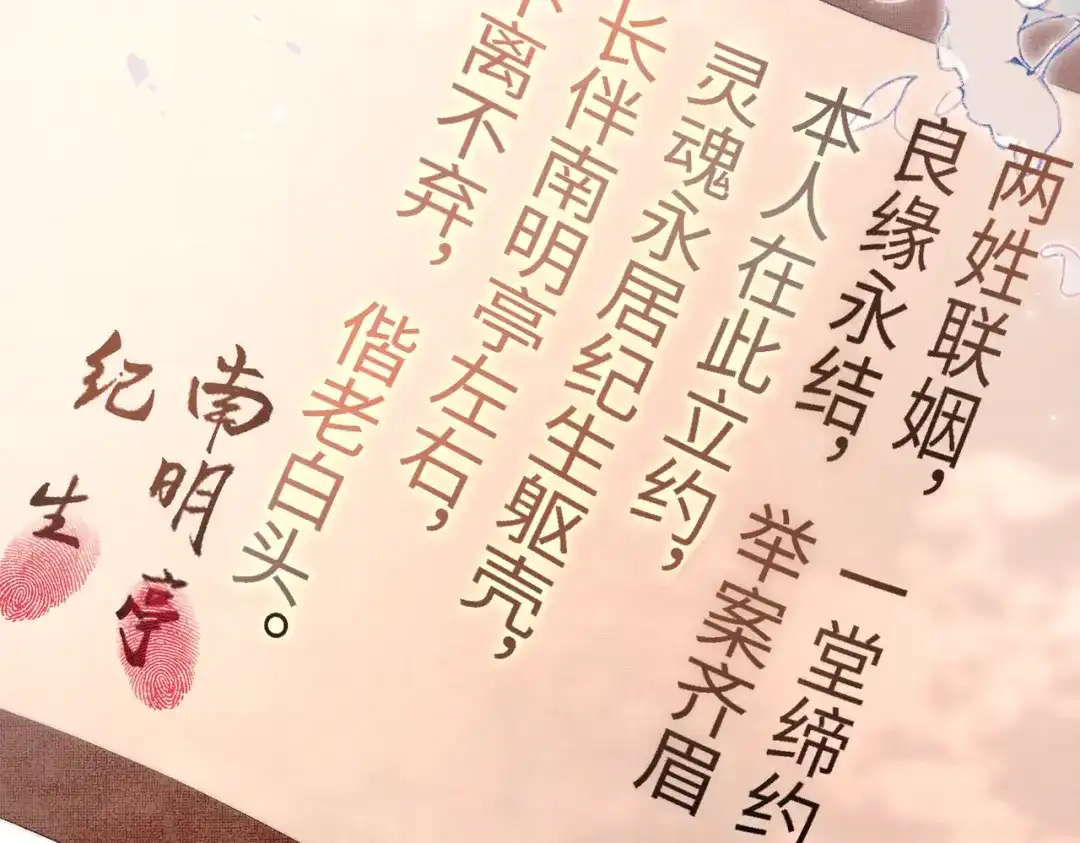 两姓联姻，一堂缔约
良缘永结，举案齐眉
本人在此立约，
灵魂永居纪生躯壳，
长伴南明亭左右，
离不弃，
偕老白头。
南明亭
纪生